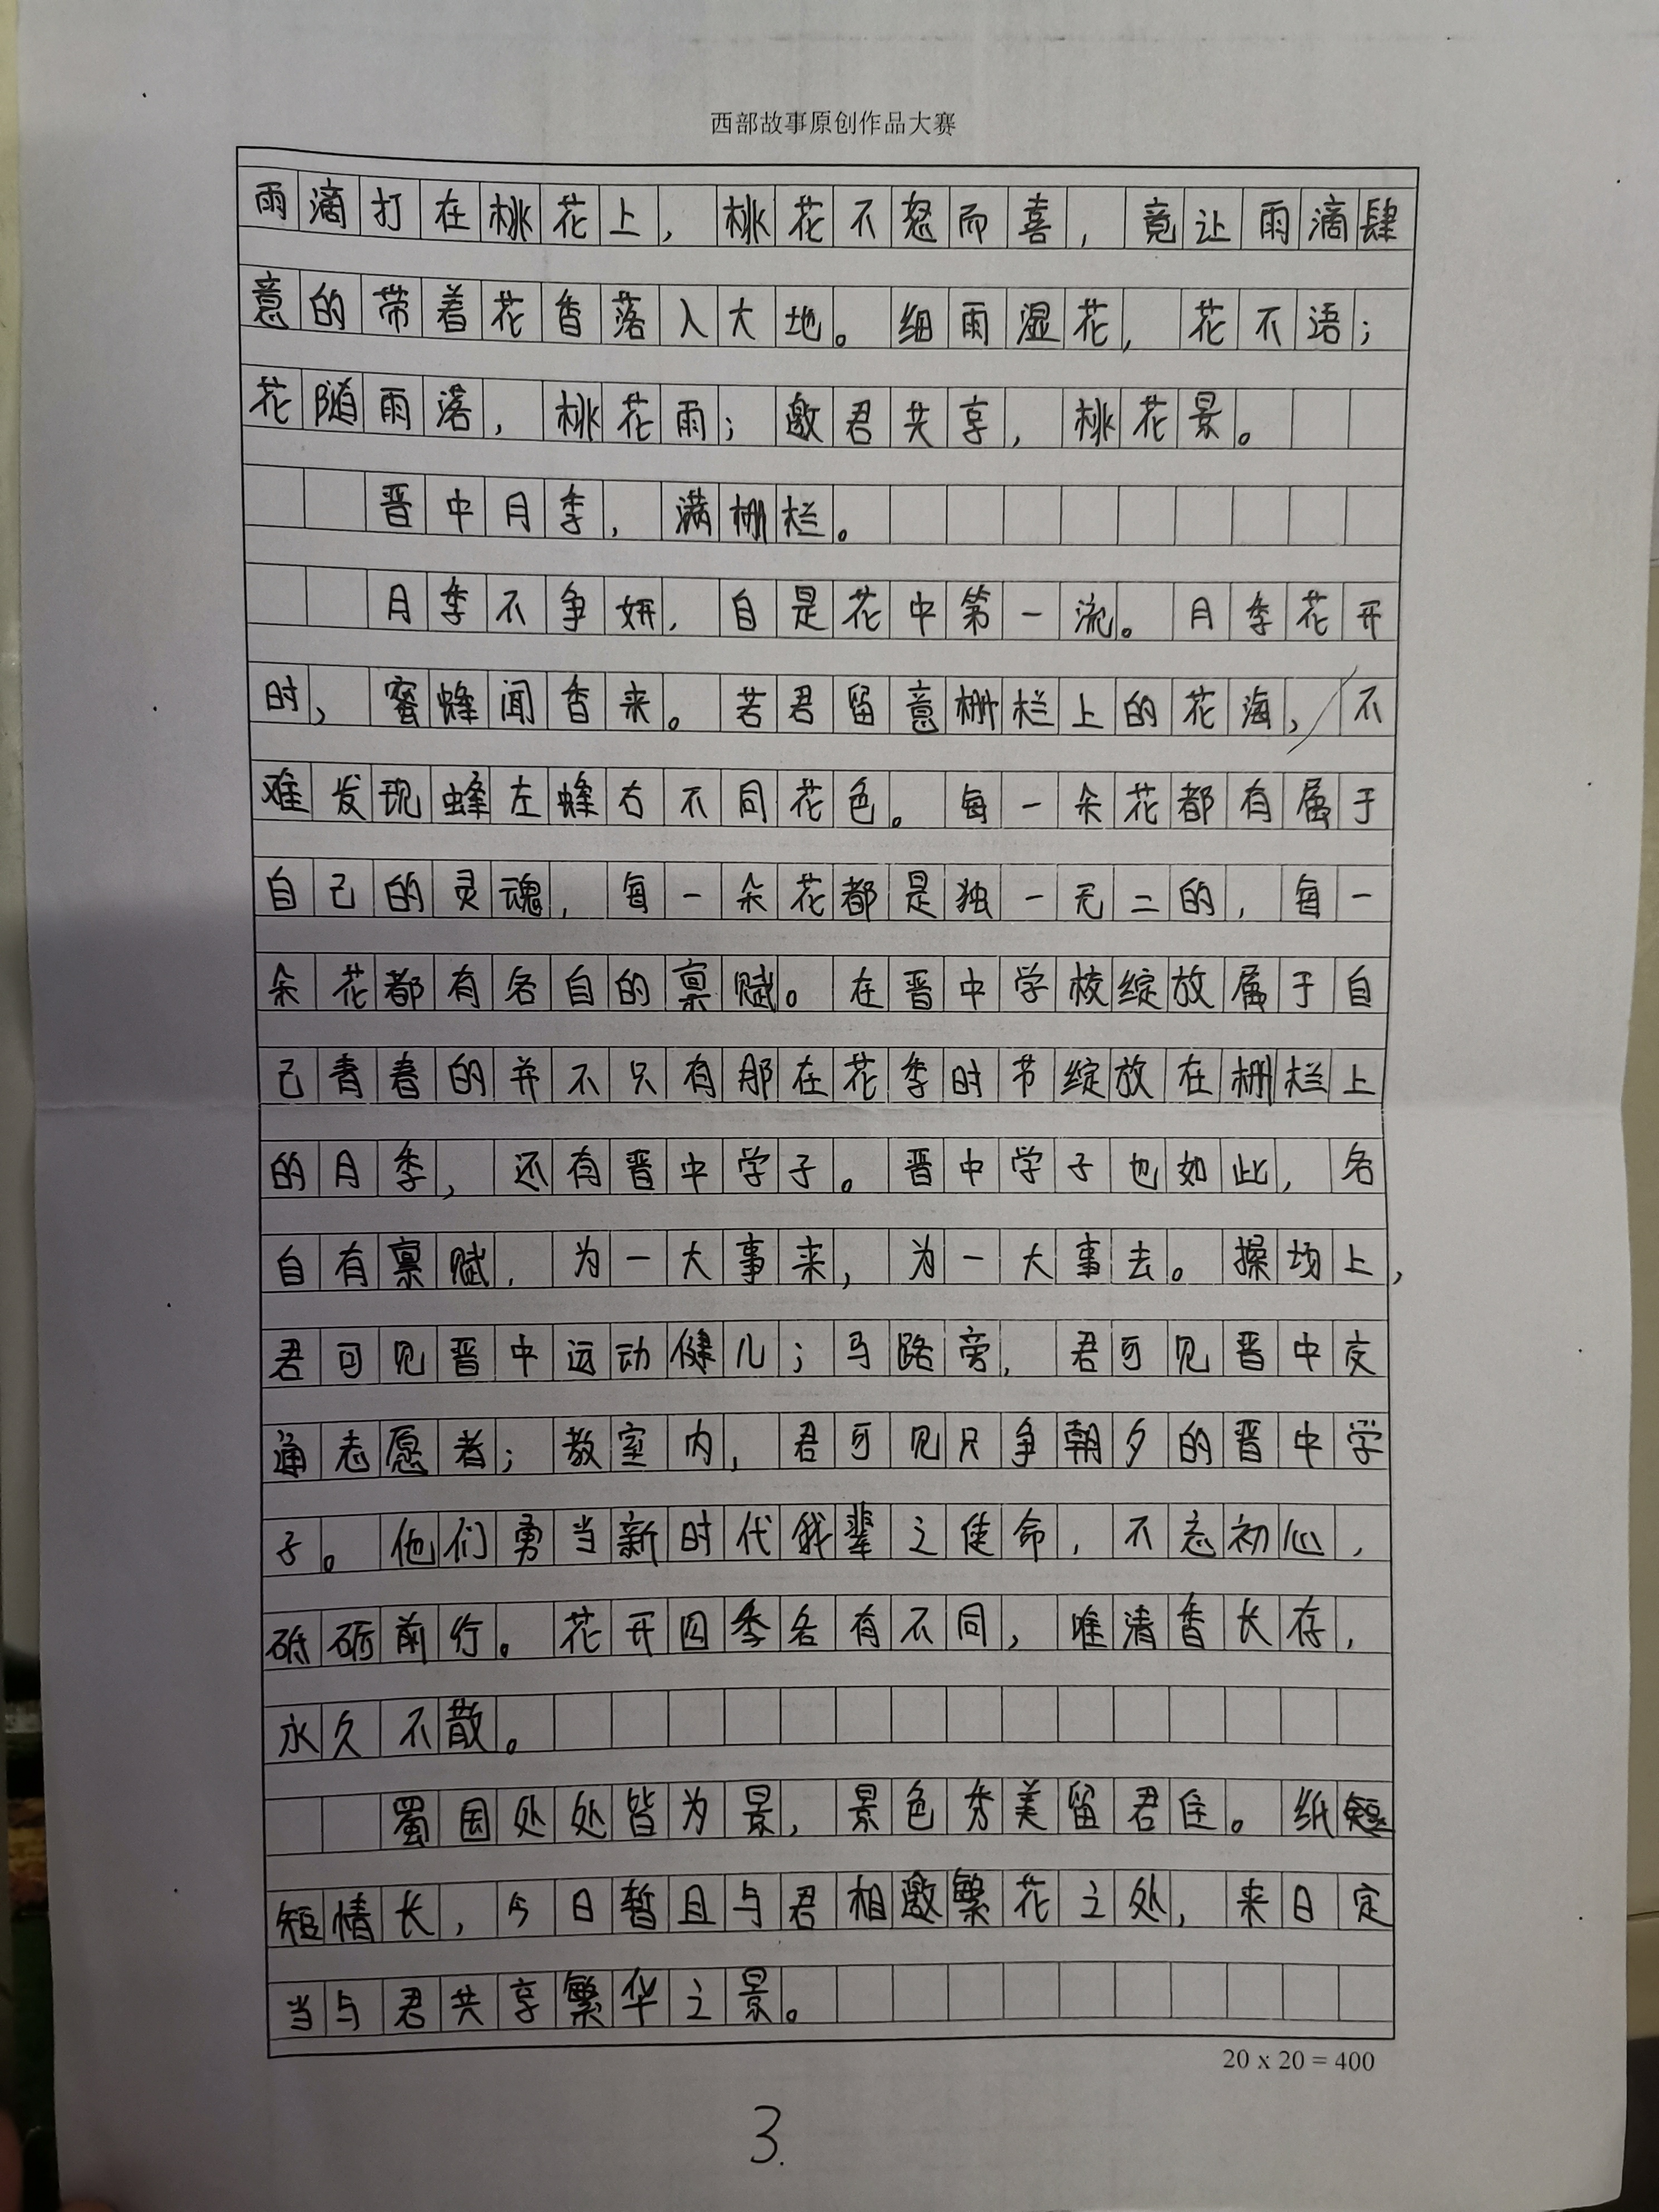 西部故事原创作品大赛
雨滴打在桃花上，桃花不怒而喜，竟让雨滴肆
意的带着花香落入大地。细雨湿花，花不语；
花随雨落，桃花雨；邀君共享，桃花景。
晋中月季，满栅栏。
月季不争妍，自是花中第一流。月季花开
时，蜜蜂闻香来。若君留意栅栏上的花海，不
难发现蜂左蜂右不同花色。每一朵花都有属于
自己的灵魂，每一朵花都是独一无二的，每一
朵花都有各自的禀赋。在晋中学校绽放属于自
己青春的并不只有那在花季时节绽放在栅栏上
的月季，还有晋中学子。晋中学子也如此，各
自有禀赋，为一大事来，为一大事去。操场上，
君可见晋中运动健儿；马路旁，君可见晋中交
通志愿者；教室内，君可见只争朝夕的晋中学
子。他们勇当新时代我辈之使命，不忘初心，
砥砺前行。花开四季各有不同，唯清香长存，
永久不散。
蜀国处处皆为景，景色秀美留君住。纸
短情长，今日暂且与君相邀繁花之处，来日定
当与君共享繁华之景。
20 x 20 = 400
3.